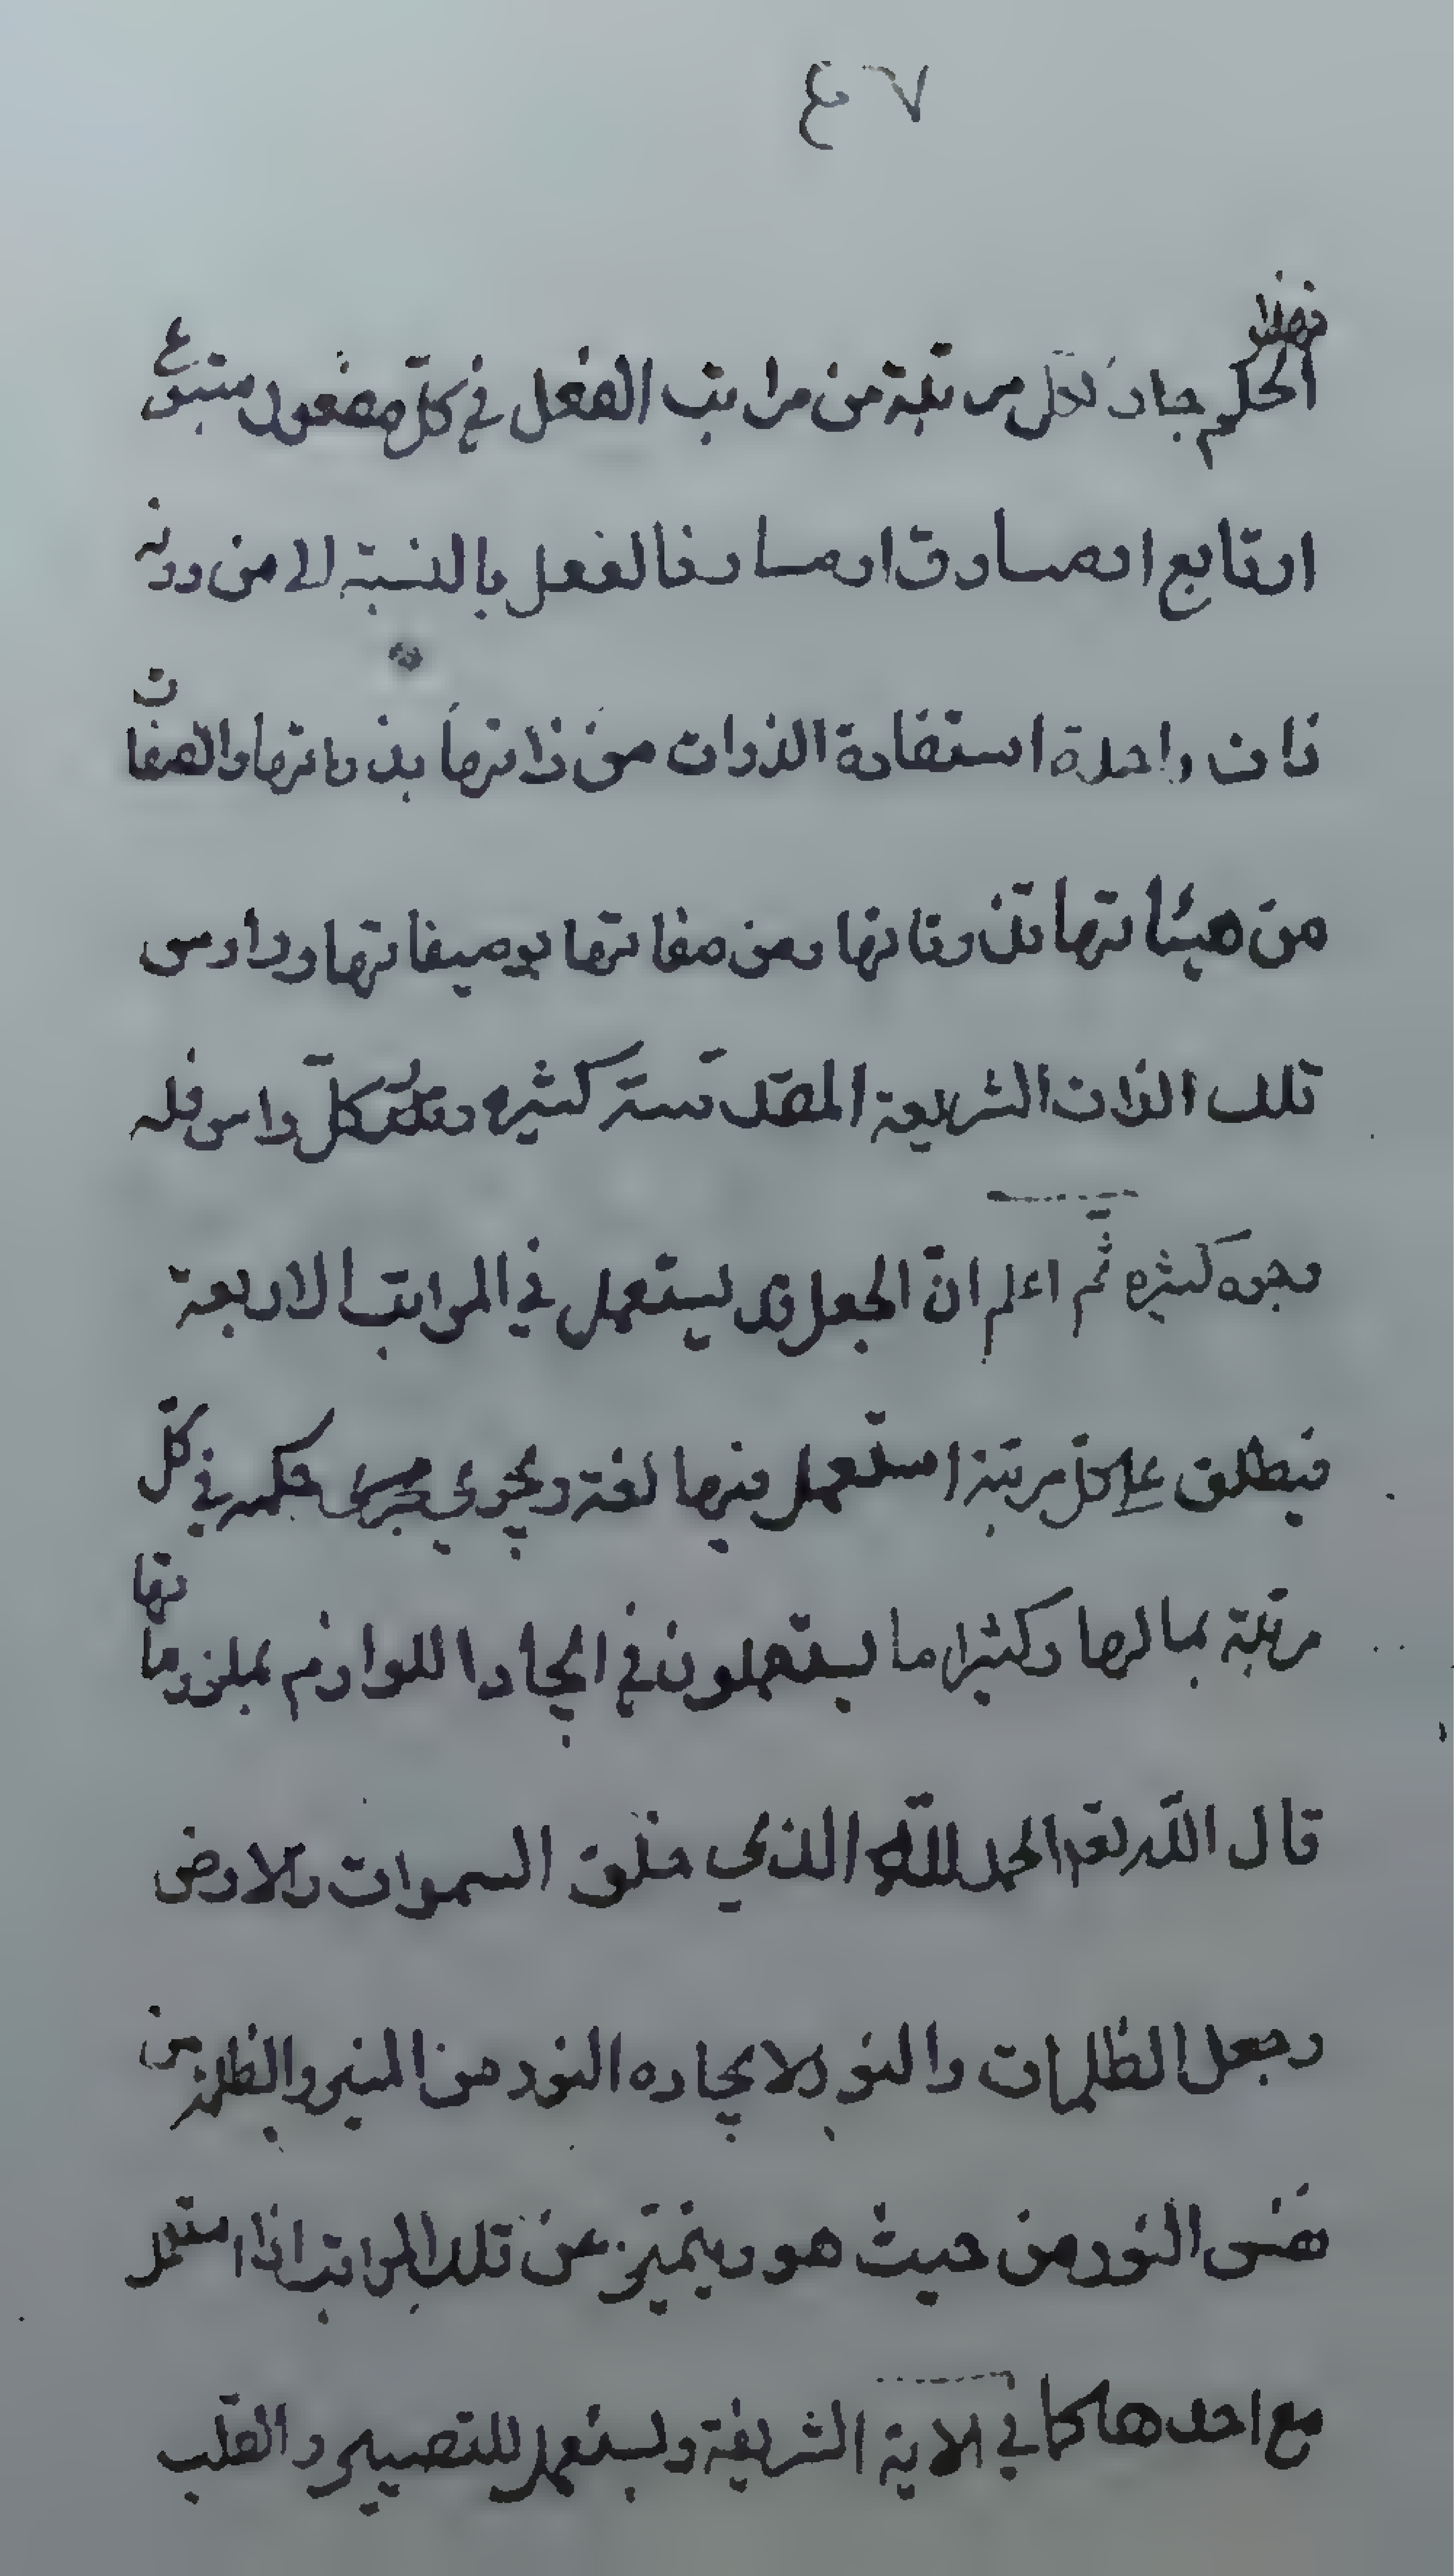 ٤٧
فهذا
الحكم جار لكل مرتبة من مراتب الفعل في كل مفعول متبوع
او تابع او مساوق او مساو فالفعل بالنسبة الى من دونه
ذات واحدة استفادة الذوات من ذاتها بذواتها والصفات
من هيئاتها تذوتاتها ومن صفاتها توصيفاتها ورءوس
تلك الذات الشريفة المقدسة كثيره وتلك كل راس فله
وجوه كثيره ثم اعلم ان الجعل قد يستعمل في المراتب الاربعة
فيطلق على كل مرتبة استعمل فيها لغة ويجري حكمه في كل
مرتبة بمالها وكثيرا ما يستعملون في ايجاد اللوازم بملزوماتها
قال الله تعم الحمد لله الذي خلق السموات والارض
وجعل الظلمات والنور لايجاده النور من المنير والظلمة من
نفس النور من حيث هو ويتميز عن تلك المراتب اذا استعمل
مع احدها كما في الاية الشريفة ويستعمل للتصيير والقلب